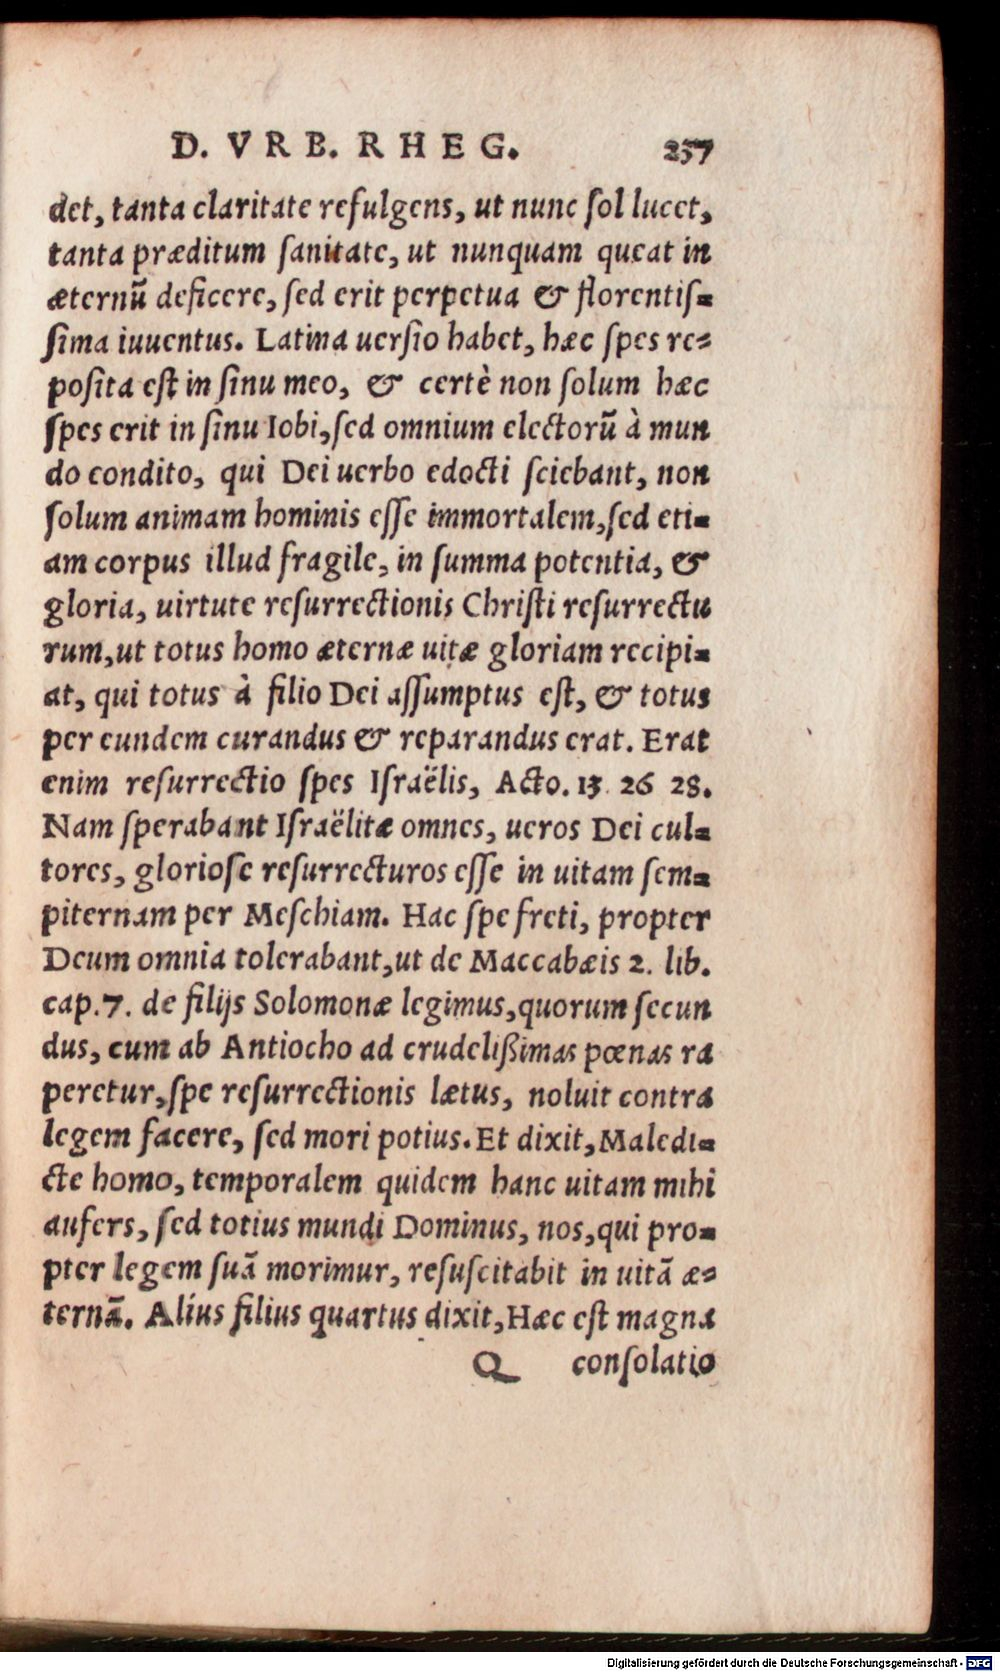 D. VRB. RHEG. 257
det, tanta claritate refulgens, ut nunc ſol lucet,
tanta præditum ſanitate, ut nunquam queat in
æternũ deficere, ſed erit perpetua & florentiſ-
ſima iuuentus. Latina uerſio habet, hæc ſpes re-
poſita eſt in ſinu meo, & certè non ſolum hæc
ſpes erit in ſinu Iobi, ſed omnium electorũ à mun
do condito, qui Dei uerbo edocti ſciebant, non
ſolum animam hominis eſſe immortalem, ſed eti-
am corpus illud fragile, in ſumma potentia, &
gloria, uirtute reſurrectionis Chriſti reſurrectu
rum, ut totus homo æternæ uitæ gloriam recipi-
at, qui totus à filio Dei aſſumptus eſt, & totus
per eundem curandus & reparandus erat. Erat
enim reſurrectio ſpes Iſraëlis, Acto. 13 26 28.
Nam ſperabant Iſraëlitæ omnes, ueros Dei cul-
tores, glorioſe reſurrecturos eſſe in uitam ſem-
piternam per Meſchiam. Hac ſpe freti, propter
Deum omnia tolerabant, ut de Maccabæis 2. lib.
cap. 7. de filijs Solomonæ legimus, quorum ſecun
dus, cum ab Antiocho ad crudelißimas pœnas ra
peretur, ſpe reſurrectionis lætus, noluit contra
legem facere, ſed mori potius. Et dixit, Maledi-
cte homo, temporalem quidem hanc uitam mihi
aufers, ſed totius mundi Dominus, nos, qui pro-
pter legem ſuã morimur, reſuſcitabit in uitã æ-
ternã. Alius filius quartus dixit, Hæc eſt magna
Q conſolatio
Digitalisierung gefördert durch die Deutsche Forschungsgemeinschaft - DFG